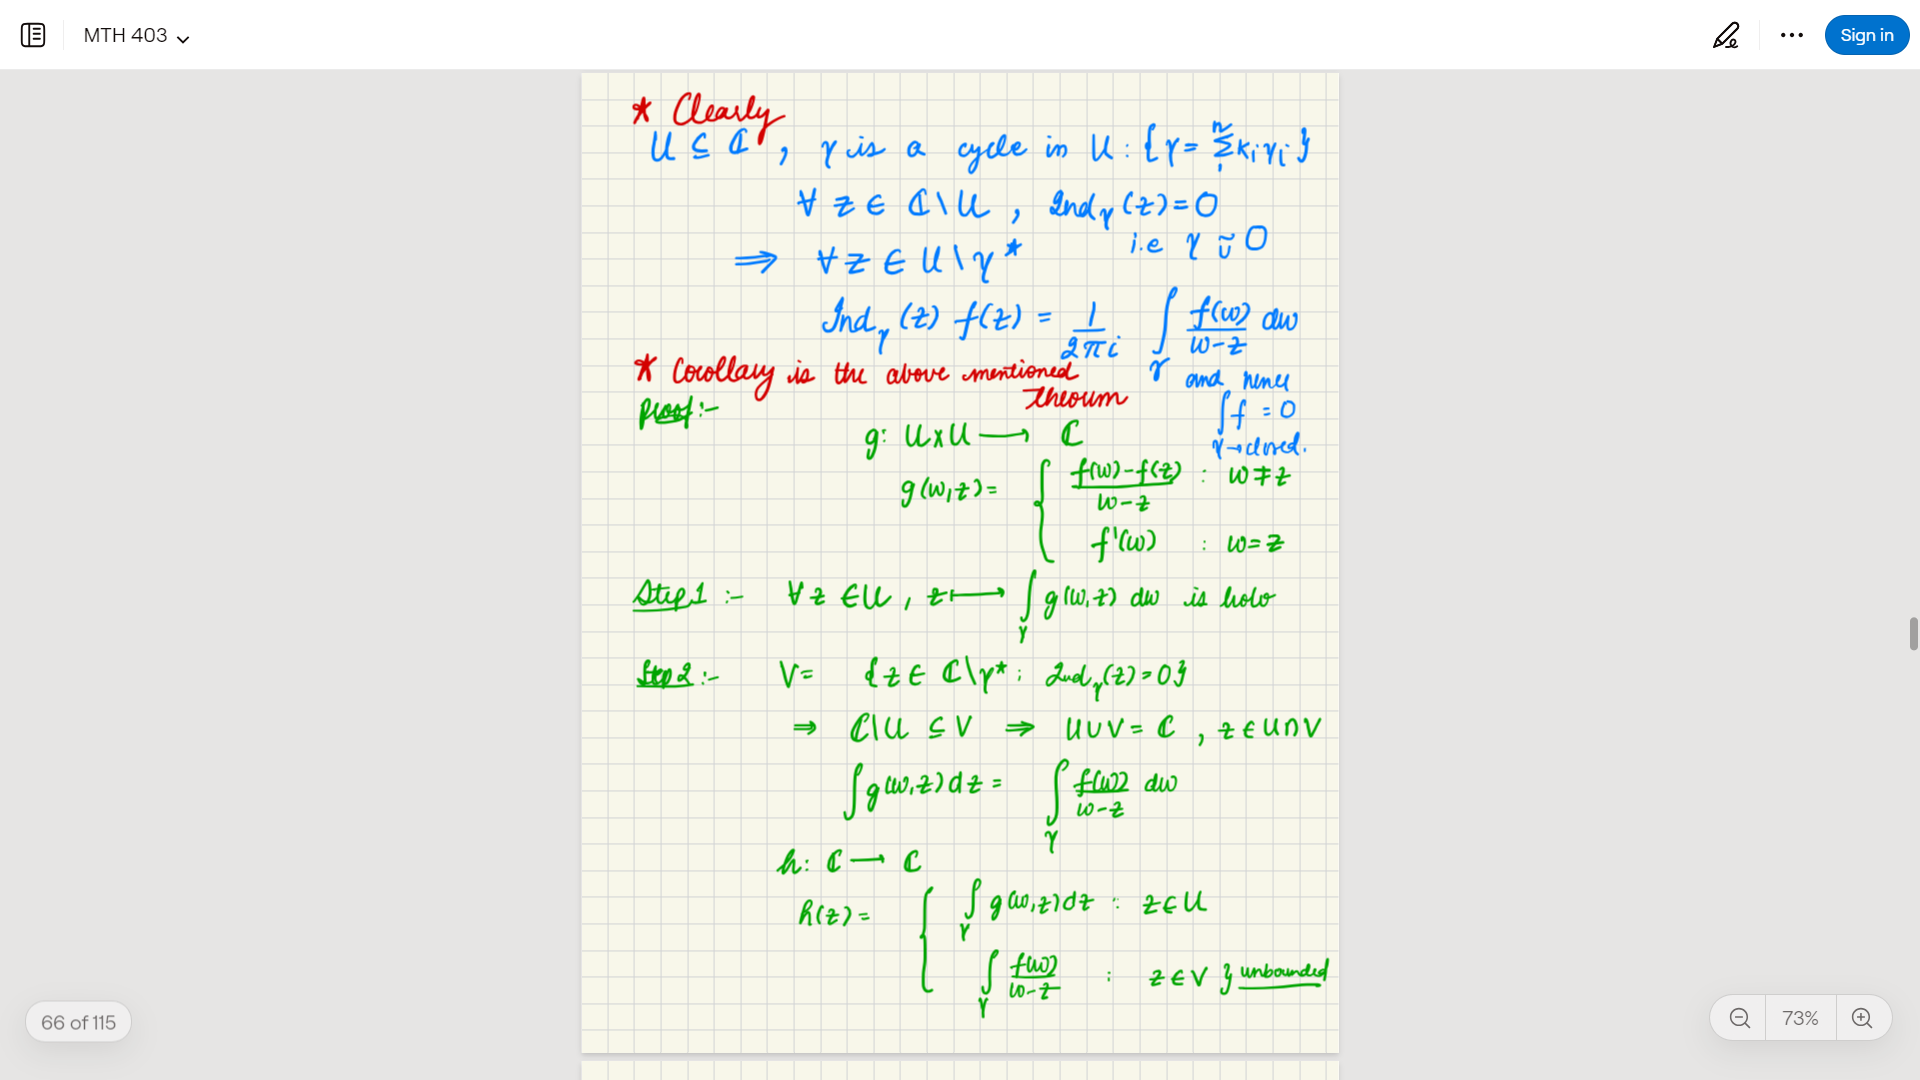 MTH 403
Sign in
* Clearly
U ⊆ ℂ , γ is a cycle in U : { γ = Σ₁ⁿ kᵢ γᵢ }
∀ z ∈ ℂ \ U , Ind_γ (z) = 0
i.e γ ~_U 0
⇒ ∀ z ∈ U \ γ*
Ind_γ (z) f(z) = 1/2πi ∫_γ f(w)/w-z dw
* Corollary is the above mentioned theorem
and hence
∫ f = 0
γ → closed.
Proof :-
g : U x U → ℂ
g(w,z) = { f(w)-f(z)/w-z : w ≠ z
f'(w) : w = z
Step 1 :- ∀ z ∈ U , z ↦ ∫_γ g(w,z) dw is holo
Step 2 :- V = { z ∈ ℂ \ γ* ; Ind_γ (z) = 0 }
⇒ ℂ \ U ⊆ V ⇒ U ∪ V = ℂ , z ∈ U ∩ V
∫ g(w,z) dz = ∫_γ f(w)/w-z dw
h : ℂ → ℂ
h(z) = { ∫_γ g(w,z) dz : z ∈ U
∫_γ f(w)/w-z : z ∈ V } unbounded
66 of 115
73%